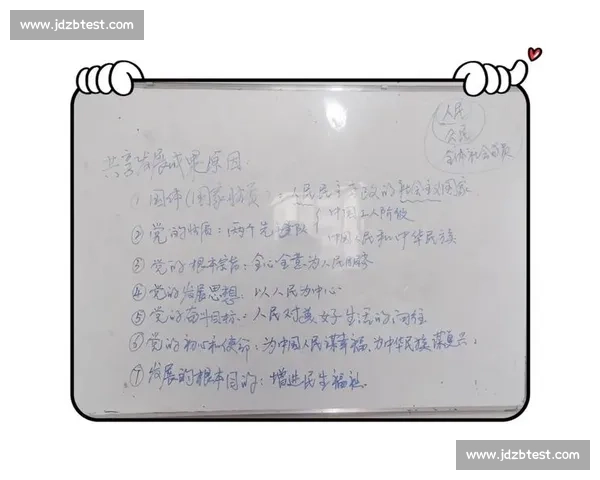 www.jdzbtest.com
人民
公民
全体社会成员
共享发展成果原因
① 国体(国家性质): 人民民主专政的社会主义国家
② 党的性质: 两个先锋队 { 中国工人阶级
中国人民和中华民族
③ 党的根本宗旨: 全心全意为人民服务
④ 党的发展思想: 以人民为中心
⑤ 党的奋斗目标: 人民对美好生活的向往
⑥ 党的初心和使命: 为中国人民谋幸福,为中华民族谋复兴;
⑦ 发展的根本目的: 增进民生福祉.
www.jdzbtest.com